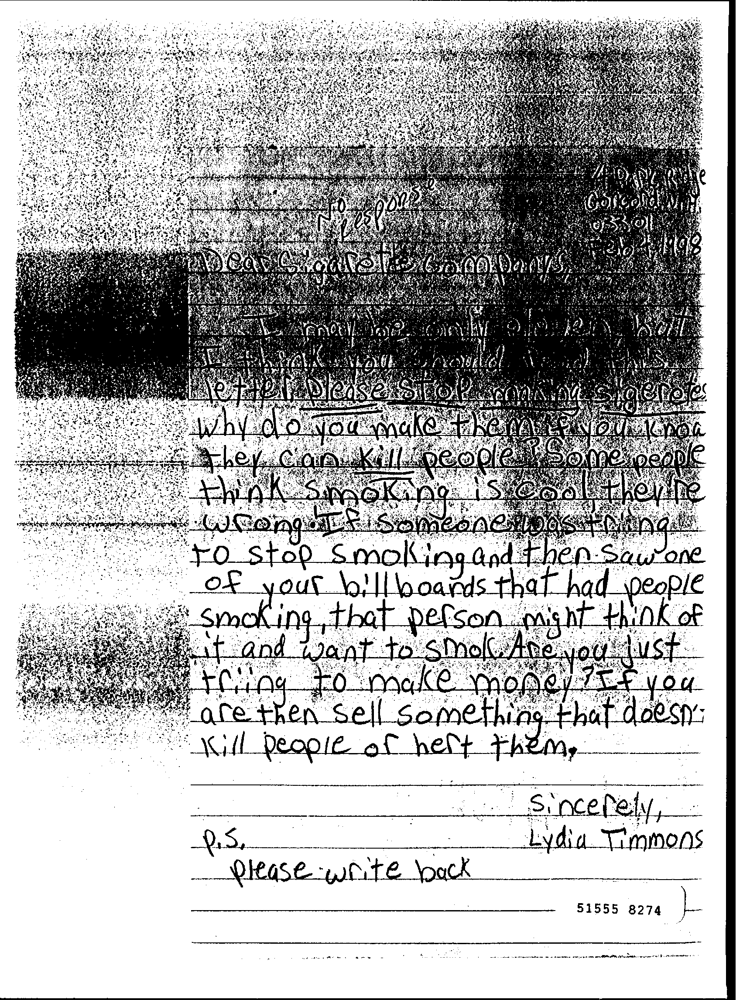 Ridge
Concord, N.H.
03301
No response
Feb 4, 1998
Dear Sigarette Company,
I may be only eleven, but
I think you should read this
letter. please stop making sigerotes
why do you make them if you knoa
they can kill people? Some people
think smoking is cool, they're
wrong. If someone was triing
to stop smoking and then saw one
of your billboards that had people
smoking, that person might think of
it and want to smok. Are you just
triing to make money? If you
are then sell something that doesn't
kill people or hert them.
Sincerely,
P.S. Lydia Timmons
please write back
51555 8274